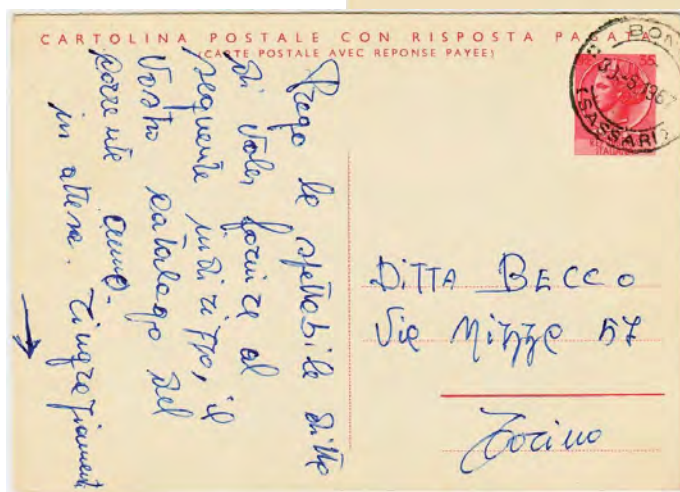 CARTOLINA POSTALE CON RISPOSTA PAGATA
(CARTE POSTALE AVEC REPONSE PAYEE)
BON
30-6-1967
(SASSARI)
35
ITALIANA
Prego la spettabile ditta
di voler fornire al
seguente indirizzo, il
Vostro catalogo del
corrente anno.
in attesa. ringraziamenti
DITTA BECCO
Via Nizza 57
Torino